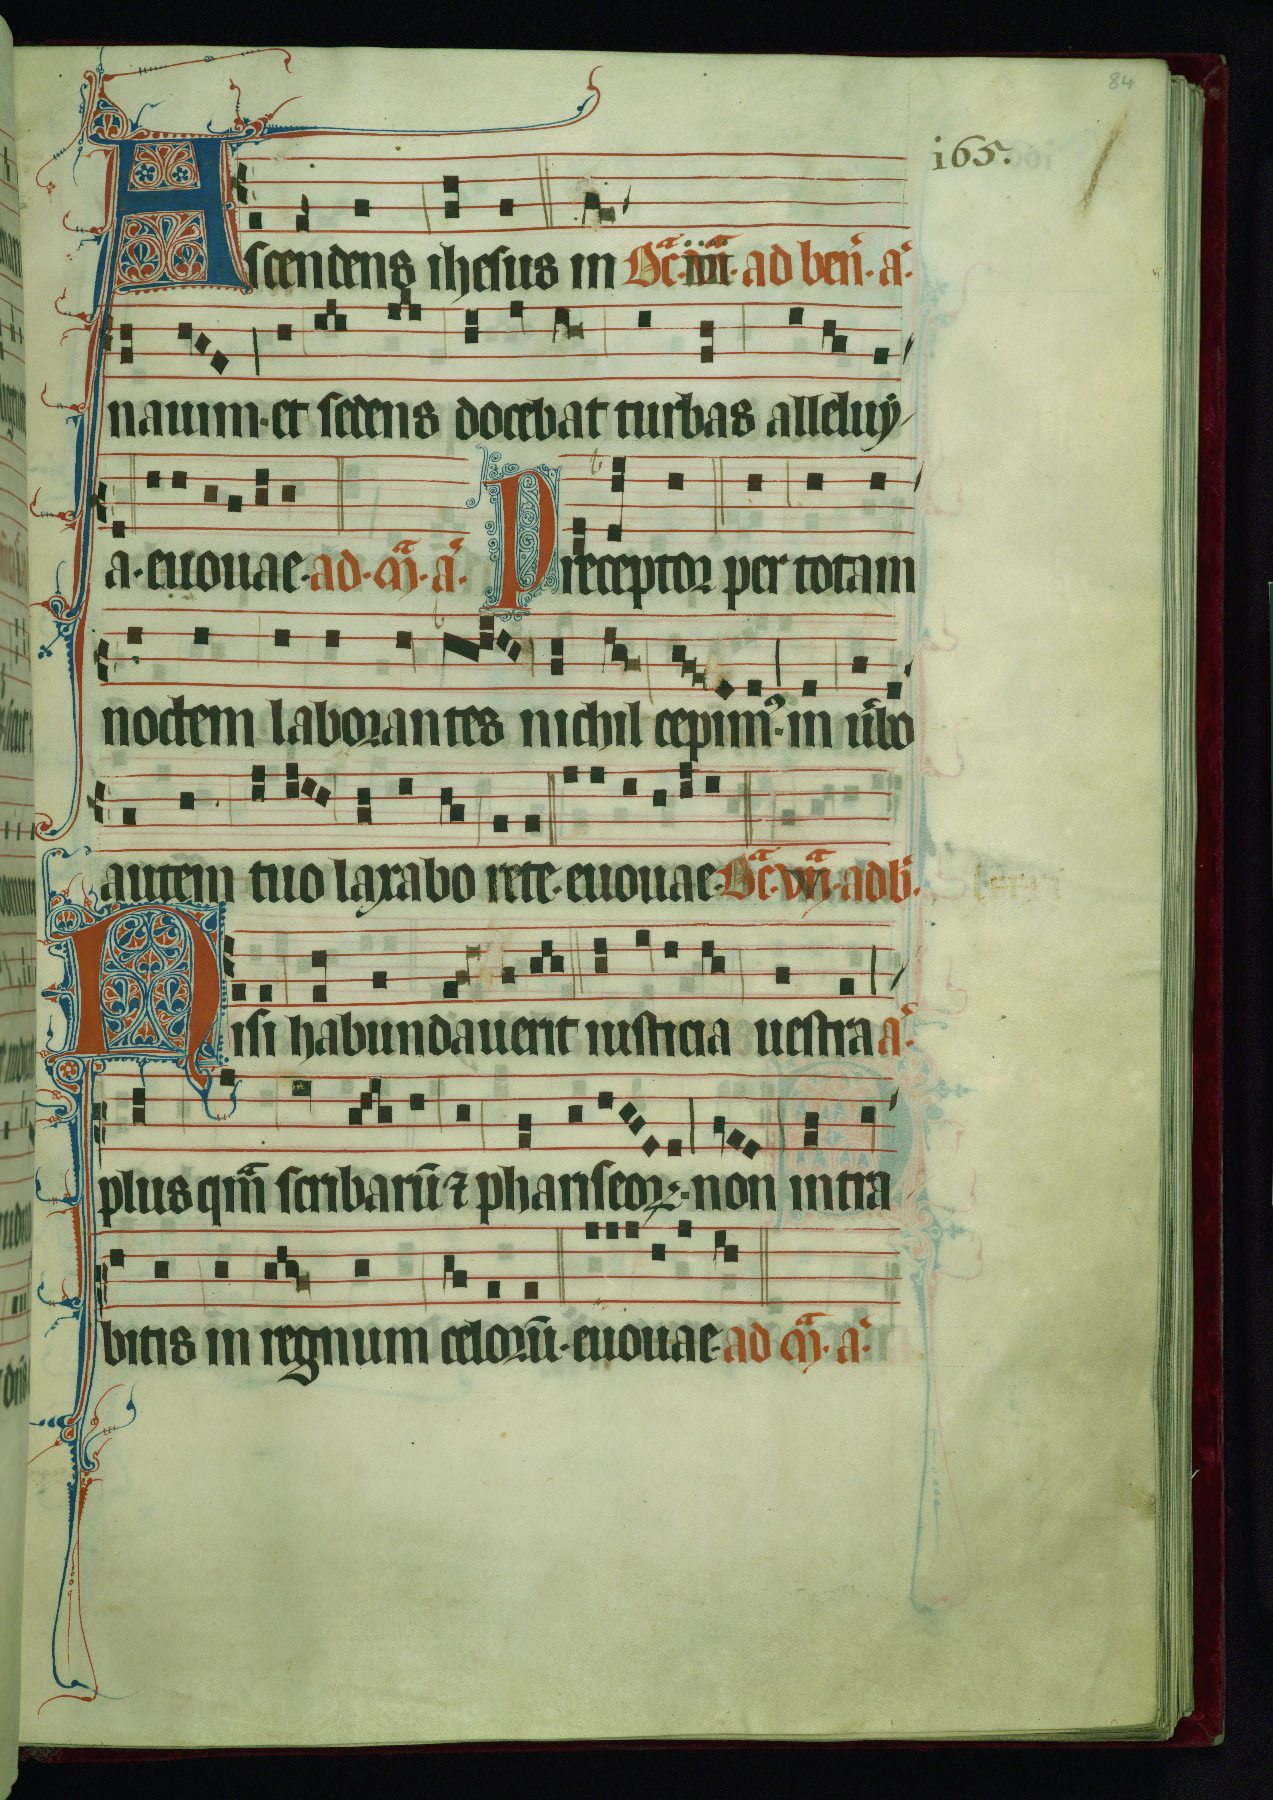 84
i65.
Ascendens ihesus in Dc̄a iiii ad ben̄. a.
nauim·et sedens docebat turbas alleluy
a·euouae·ad·m̄·a. Preceptor per totam
noctem laborantes nichil cepim⁹·in ūbo
autem tuo laxabo rete·euouae·Dc̄a·vi·ad b̄.
Nisi habundauerit iusticia uestra a.
plus qm̄ scribarū ⁊ phariseoꝝ·non intra
bitis in regnum celorū·euouae·ad m̄·a.